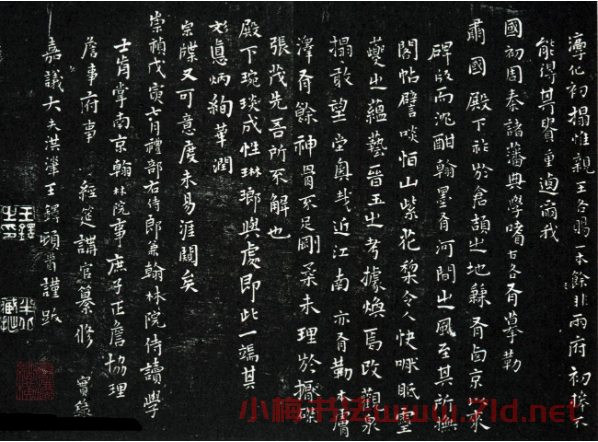 淳化初搨惟親王各賜一本餘非兩府初拜不
能得其貴重迺爾我
國初周秦諸藩典學嗜古各有摹勒
肅國殿下於倉頡之地有古京
碑版而沈酣翰墨有河間之風至其所撫
閣帖譬啖山紫花梨令人快眠雲
之蘊藝晉玉之考據煥焉改觀泉
搨敢望堂奧哉近江南亦有勒本膚
澤有餘神骨不足剛柔未理於
張茂先吾所不解也
殿下琬琰成性琳瑯與處即此一端其
炳絢華潤
宗牒又可意度未易涯闚矣
崇禎戊寅六月禮部右侍郎兼翰林院侍讀學
士掌南京翰林院事庶子正詹協理
詹事府事 經筵講官纂修 實錄
嘉議大夫洪王鐸頓首謹跋
王鐸之印
小梅书法www.7ld.net